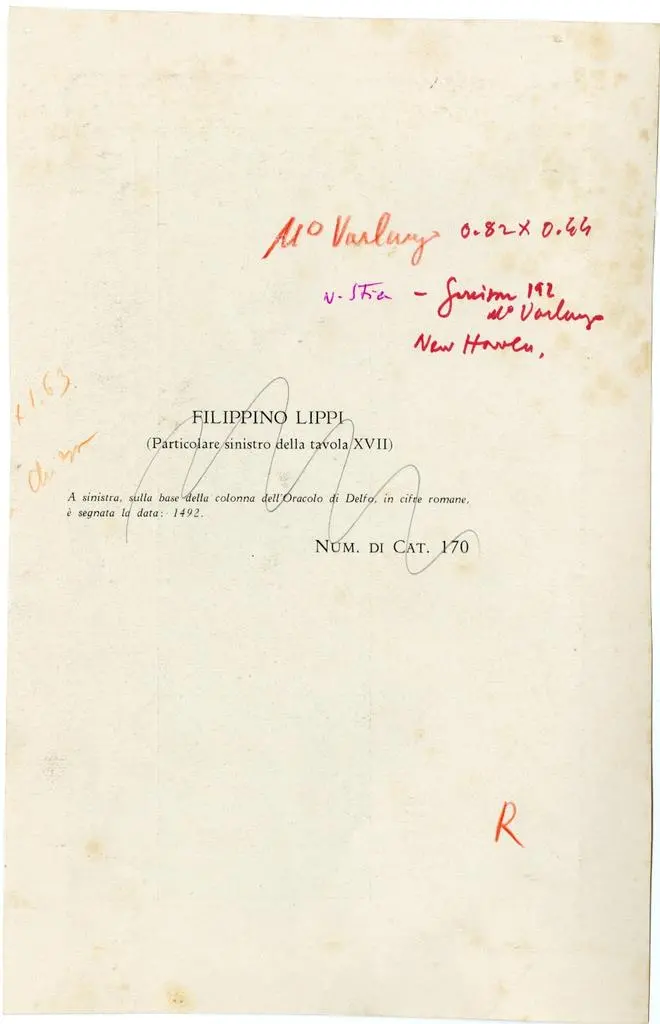 Mº Varlungo 0.82 X 0.44
-
192
Mº Varlungo
New Haven,
x 1.63.
FILIPPINO LIPPI
(Particolare sinistro della tavola XVII)
A sinistra, sulla base della colonna dell'Oracolo di Delfo, in cifre romane,
è segnata la data: 1492.
NUM. DI CAT. 170
R